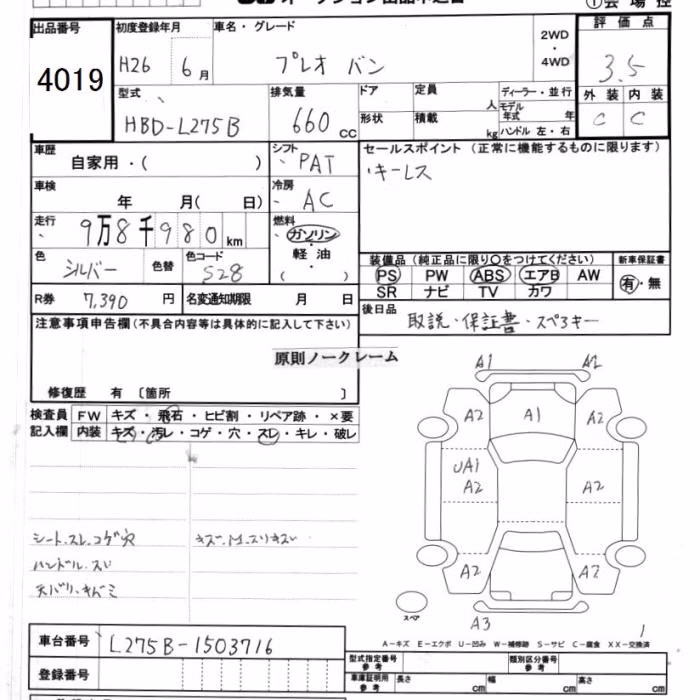 オークション出品申込書
① 会 場 控
出品番号
4019
初度登録年月
H26 6 月
車名・グレード
プレオ バン
2WD
・
4WD
評 価 点
3.5
型式
HBD-L275B
排気量
660 cc
ドア
形状
定員
人
積載
kg
ディーラー・並 行
モデル年式 年
ハンドル 左・右
外 装 内 装
C C
車歴
自家用・( )
シフト
PAT
セールスポイント (正常に機能するものに限ります)
・キーレス
車検
年 月( 日)
冷房
AC
走行
9万8千980 km
燃料
ガソリン
・
軽 油
( )
色
シルバー
色替
色コード
S28
装備品 (純正品に限り○をつけてください)
新車保証書
PS PW ABS エアB AW
有・無
SR ナビ TV カワ
R券 7,390 円
名変通知期限 月 日
後日品
取説・保証書・スペアキー
注意事項申告欄 (不具合内容等は具体的に記入して下さい)
原則ノークレーム
修復歴 有 〔箇所 〕
検査員
記入欄
FW キズ・飛石・ヒビ割・リペア跡・×要
内装 キズ・汚レ・コゲ・穴・スレ・キレ・破レ
シート.スレ.コゲ穴
ハンドル.スレ
天バリ.キバミ
A1 A2
A2 A1 A2
UA1
A2 A2
A2 A2
スペア
A3
1
A-キズ E-エクボ U-凹み W-補修跡 S-サビ C-腐食 XX-交換済
車台番号
L275B-1503716
登録番号
型式指定番号
参 考
類別区分番号
参 考
車庫証明用
参 考
長さ cm
幅 cm
高さ cm